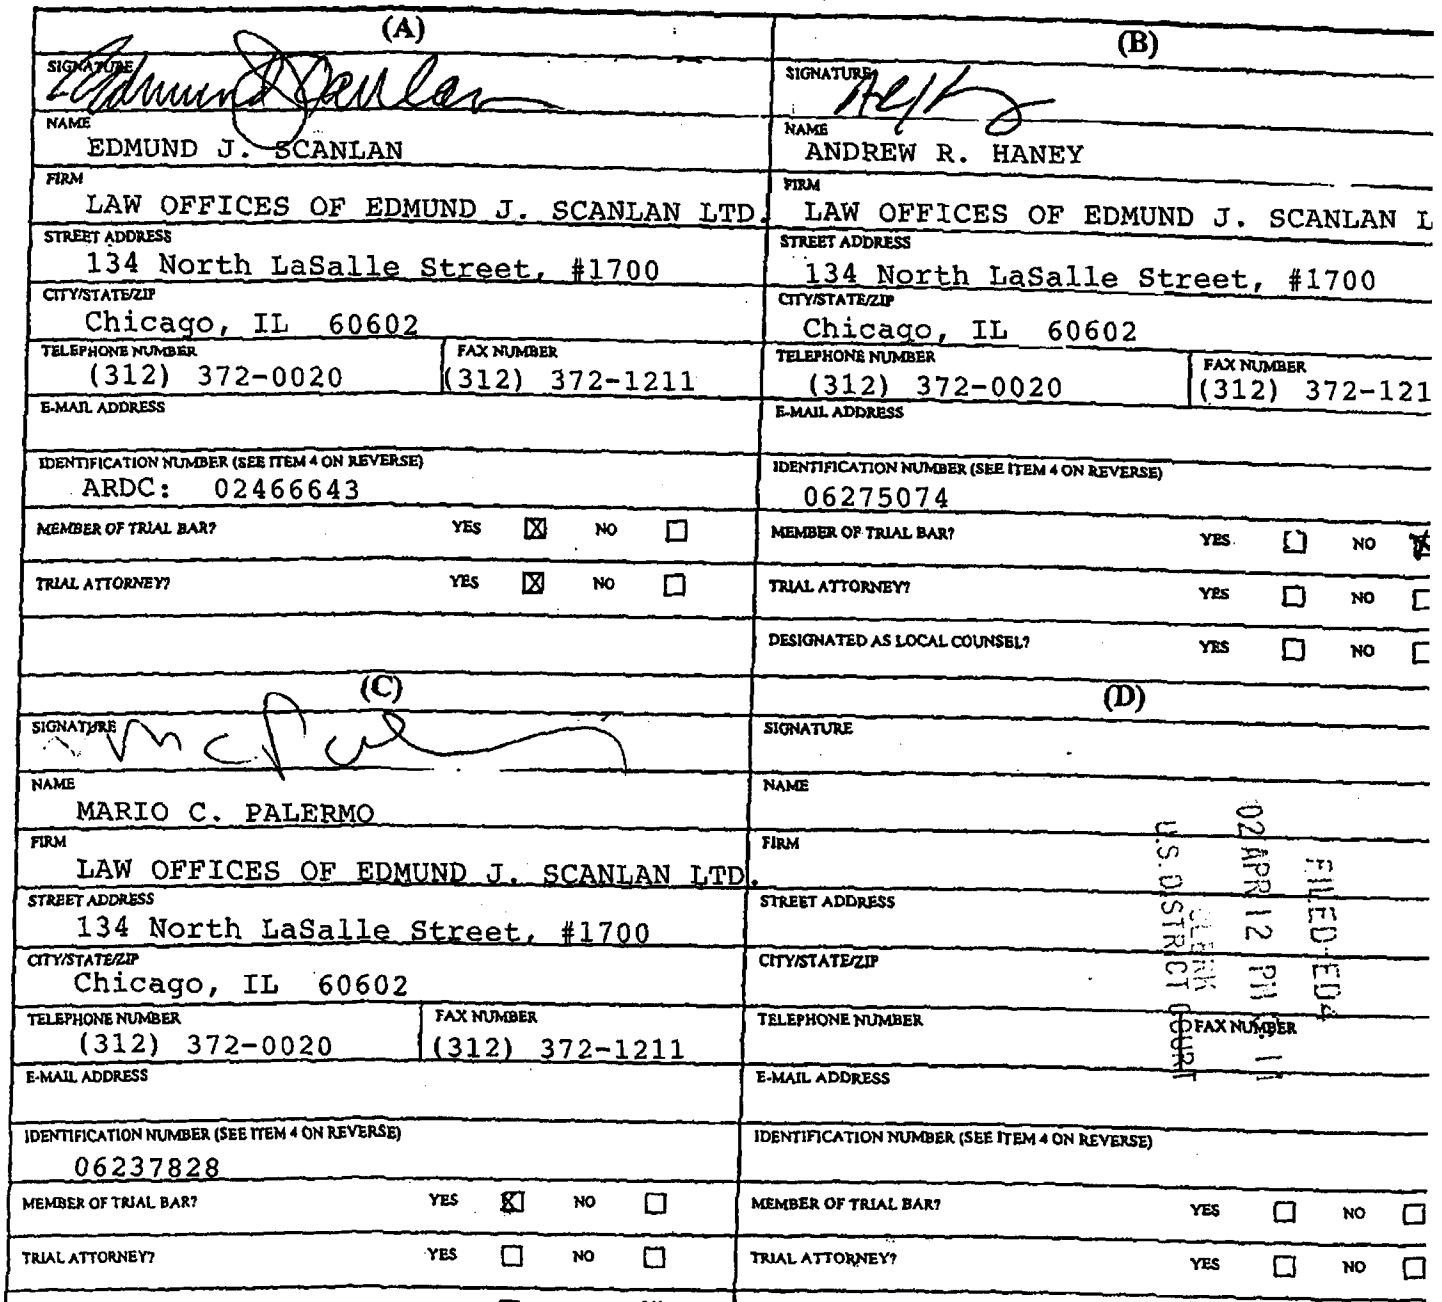 (A)
SIGNATURE
Edmund J Scanlan
NAME
EDMUND J. SCANLAN
FIRM
LAW OFFICES OF EDMUND J. SCANLAN LTD.
STREET ADDRESS
134 North LaSalle Street, #1700
CITY/STATE/ZIP
Chicago, IL 60602
TELEPHONE NUMBER
(312) 372-0020
FAX NUMBER
(312) 372-1211
E-MAIL ADDRESS
IDENTIFICATION NUMBER (SEE ITEM 4 ON REVERSE)
ARDC: 02466643
MEMBER OF TRIAL BAR? YES ☒ NO ☐
TRIAL ATTORNEY? YES ☒ NO ☐
(B)
SIGNATURE
NAME
ANDREW R. HANEY
FIRM
LAW OFFICES OF EDMUND J. SCANLAN L
STREET ADDRESS
134 North LaSalle Street, #1700
CITY/STATE/ZIP
Chicago, IL 60602
TELEPHONE NUMBER
(312) 372-0020
FAX NUMBER
(312) 372-121
E-MAIL ADDRESS
IDENTIFICATION NUMBER (SEE ITEM 4 ON REVERSE)
06275074
MEMBER OF TRIAL BAR? YES ☐ NO ☒
TRIAL ATTORNEY? YES ☐ NO ☐
DESIGNATED AS LOCAL COUNSEL? YES ☐ NO ☐
(C)
SIGNATURE
NAME
MARIO C. PALERMO
FIRM
LAW OFFICES OF EDMUND J. SCANLAN LTD.
STREET ADDRESS
134 North LaSalle Street, #1700
CITY/STATE/ZIP
Chicago, IL 60602
TELEPHONE NUMBER
(312) 372-0020
FAX NUMBER
(312) 372-1211
E-MAIL ADDRESS
IDENTIFICATION NUMBER (SEE ITEM 4 ON REVERSE)
06237828
MEMBER OF TRIAL BAR? YES ☒ NO ☐
TRIAL ATTORNEY? YES ☐ NO ☐
(D)
SIGNATURE
NAME
FIRM
STREET ADDRESS
CITY/STATE/ZIP
TELEPHONE NUMBER
FAX NUMBER
E-MAIL ADDRESS
IDENTIFICATION NUMBER (SEE ITEM 4 ON REVERSE)
MEMBER OF TRIAL BAR? YES ☐ NO ☐
TRIAL ATTORNEY? YES ☐ NO ☐
FILED-ED4
02 APR 12 PM
CLERK
U.S. DISTRICT COURT